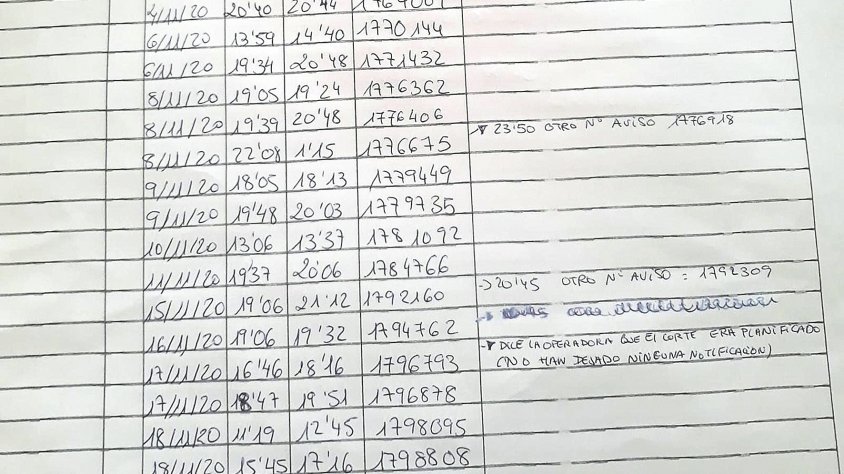 4/11/20 20'40 20'44 1769001
6/11/20 13'59 14'40 1770144
6/11/20 19'34 20'48 1771432
8/11/20 19'05 19'24 1776362
8/11/20 19'39 20'48 1776406
8/11/20 22'08 1'15 1776675 → 23'50 OTRO Nº AVISO 1776918
9/11/20 18'05 18'13 1779449
9/11/20 19'48 20'03 1779735
10/11/20 13'06 13'37 1781092
11/11/20 19'37 20'06 1784766
15/11/20 19'06 21'12 1792160 → 20'45 OTRO Nº AVISO: 1792309
16/11/20 19'06 19'32 1794762
17/11/20 16'46 18'16 1796793 → DICE LA OPERADORA QUE EL CORTE ERA PLANIFICADO
(NO HAN DEJADO NINGUNA NOTIFICACIÓN)
17/11/20 18'47 19'51 1796878
18/11/20 11'19 12'45 1798095
18/11/20 15'45 17'16 1798808